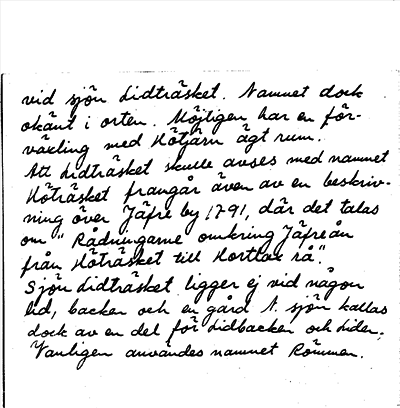 vid sjön Lidträsket. Namnet dock
okänt i orten. Möjligen har en för-
växling med Hötjärn ägt rum.
Att Lidträsket skulle avses med namnet
Höträsket framgår även av en beskriv-
ning över Jäfre by 1791, där det talas
om "Rådningarne omkring Jäfreån
från Höträsket till Hortlax rå".
Sjön Lidträsket ligger ej vid någon
lid, backen och en gård N. sjön kallas
dock av en del för Lidbacken och Liden.
Vanligen användes namnet Römmen.